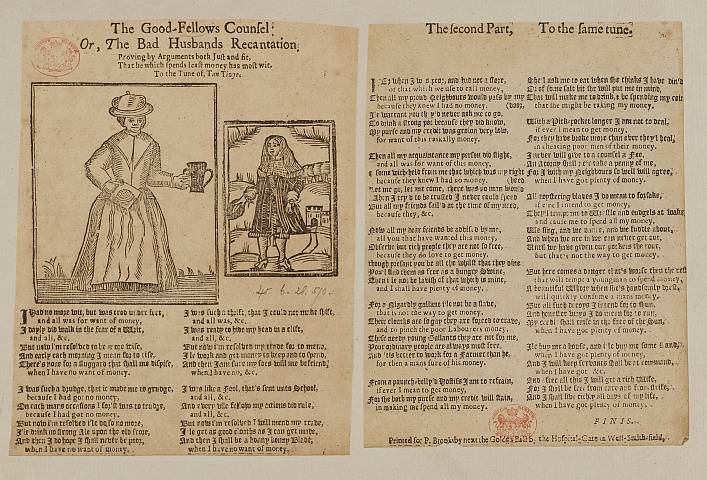 The Good-Fellows Counsel:
Or, The Bad Husbands Recantation,
Proving by Arguments both Just and fit,
That he which spends least money has most wit.
To the Tune of, Tan Tivye.
I Had no more wit, but was trod under feet,
and all was for want of money,
I dayly did walk in the fear of a Writ,
and all, &c.
But now I'm resolved to be more wise,
And early each morning I mean for to rise,
There's none for a sluggard that shall me dispise,
when I have no want of money.
I was such a drudge, that it made me to grudge,
because I had got no money,
On each mars occasions I for't was to trudge,
because I had got no money.
But now I'm resolved I'le do so no more,
I'le drink no strong Ale upon the old score,
And then I do hope I shall never be poor,
when I have no want of money.
I was such a thrift, that I could not make shift,
and all was, &c.
I was ready to hide my head in a clift,
and all, &c.
But now I'm resolved my trade for to mend,
I'le work and get money to keep and to spend,
And then I am sure my foes will me befriend,
when I have no, &c.
I was like a Fool, that's sent unto School,
and all, &c.
And every vile fellow my actions did rule,
and all, &c.
But now I'm resolved I will mend my trade,
I'le get as good cloaths as I can get made,
And then I shall be a bonny bonny Blade,
when I have no want of money.
45. b. 28. 570.
The second Part, To the same tune.
when I was poor, and had not a store,
of that which we use to call money,
Then all my proud Neighbours would pass by my
because they knew I had no money. (door,
I'le warrant you they'd never ask me to go,
To drink a strong pot because they do know,
My purse and my credit was grown very low,
for want of this rascally money.
Then all my acquaintance my person did slight,
and all was for want of this money,
some with held from me that which was my right
because they knew I had no money.
Let me go, let me come, there was no man would
Then I try'd to be trusted I never could speed
But all my friends fail'd at the time of my need,
because they, &c.
Now all my dear friends be advis'd by me,
all you that have wanted this money,
Observe but these people they are not so free,
because they do love to get money.
though present you be all the whilst that they dine
You'l find them as free as a hungry Swine,
Then I'le not be lavish of that which is mine,
and I shall have plenty of money.
For a Niggardly gallant I'le not be a slave,
that is not the way to get money,
Their cloaths are so gay they are forced to crave,
and to pinch the poor Labourers money.
These neery young Gallants they are not for me,
Your ordinary people are always most free,
And 'tis better to work for a Farmer than he,
for then a mans sure of his money.
From a paunch-belly'd Hostiss I am to refrain,
if ever I mean to get money,
For she both my purse and my credit will stain,
in making me spend all my money.
She'l ask me to eat when she thinks I have din'd
Or of some salt bit she will put me in mind,
That will make me to drink, & be spending my coin
that she might be taking my money.
With a Pick-pocket longer I am not to deal,
if ever I mean to get money,
For they have broke more than ever they'l heal,
in cheating poor men of their money.
I never will give to a counsel a Fee,
An Atorny shall ne'r take a penny of me,
For I with my Neighbours so well will agree,
when I have got plenty of money.
All roystering blades I do mean to forsake,
if ere I intend to get money,
They'l tempt me to Wrestle and cudgels at wake,
and cause me to spend all my money.
We sing, and we game, and we fuddle about,
And when we are in we can never get out,
Until we have given our pockets the rout,
but that's not the way to get money.
But here comes a danger that's worse then the rest
that will tempt a youngman to spend money,
A beautiful Whore when she's handsomly drest,
will quickly consume a mans money.
But all such decoys I intend for to shun,
And honester ways I do mean for to run,
My credit shall raise in the face of the Sun,
when I have got plenty of money.
I'le buy me a house, and I'le buy me some Land,
when I have got plenty of money,
And I will keep servants shall be at command,
when I have got &c.
And after all this I will get a rich Wife,
For I shall be free from care and from strife,
And I shall live richly all days of my life,
when I have got plenty of money.
FINIS.
Printed for P. Brooksby next the Golden Ball by the Hospital-Gate in West-Smith-field,